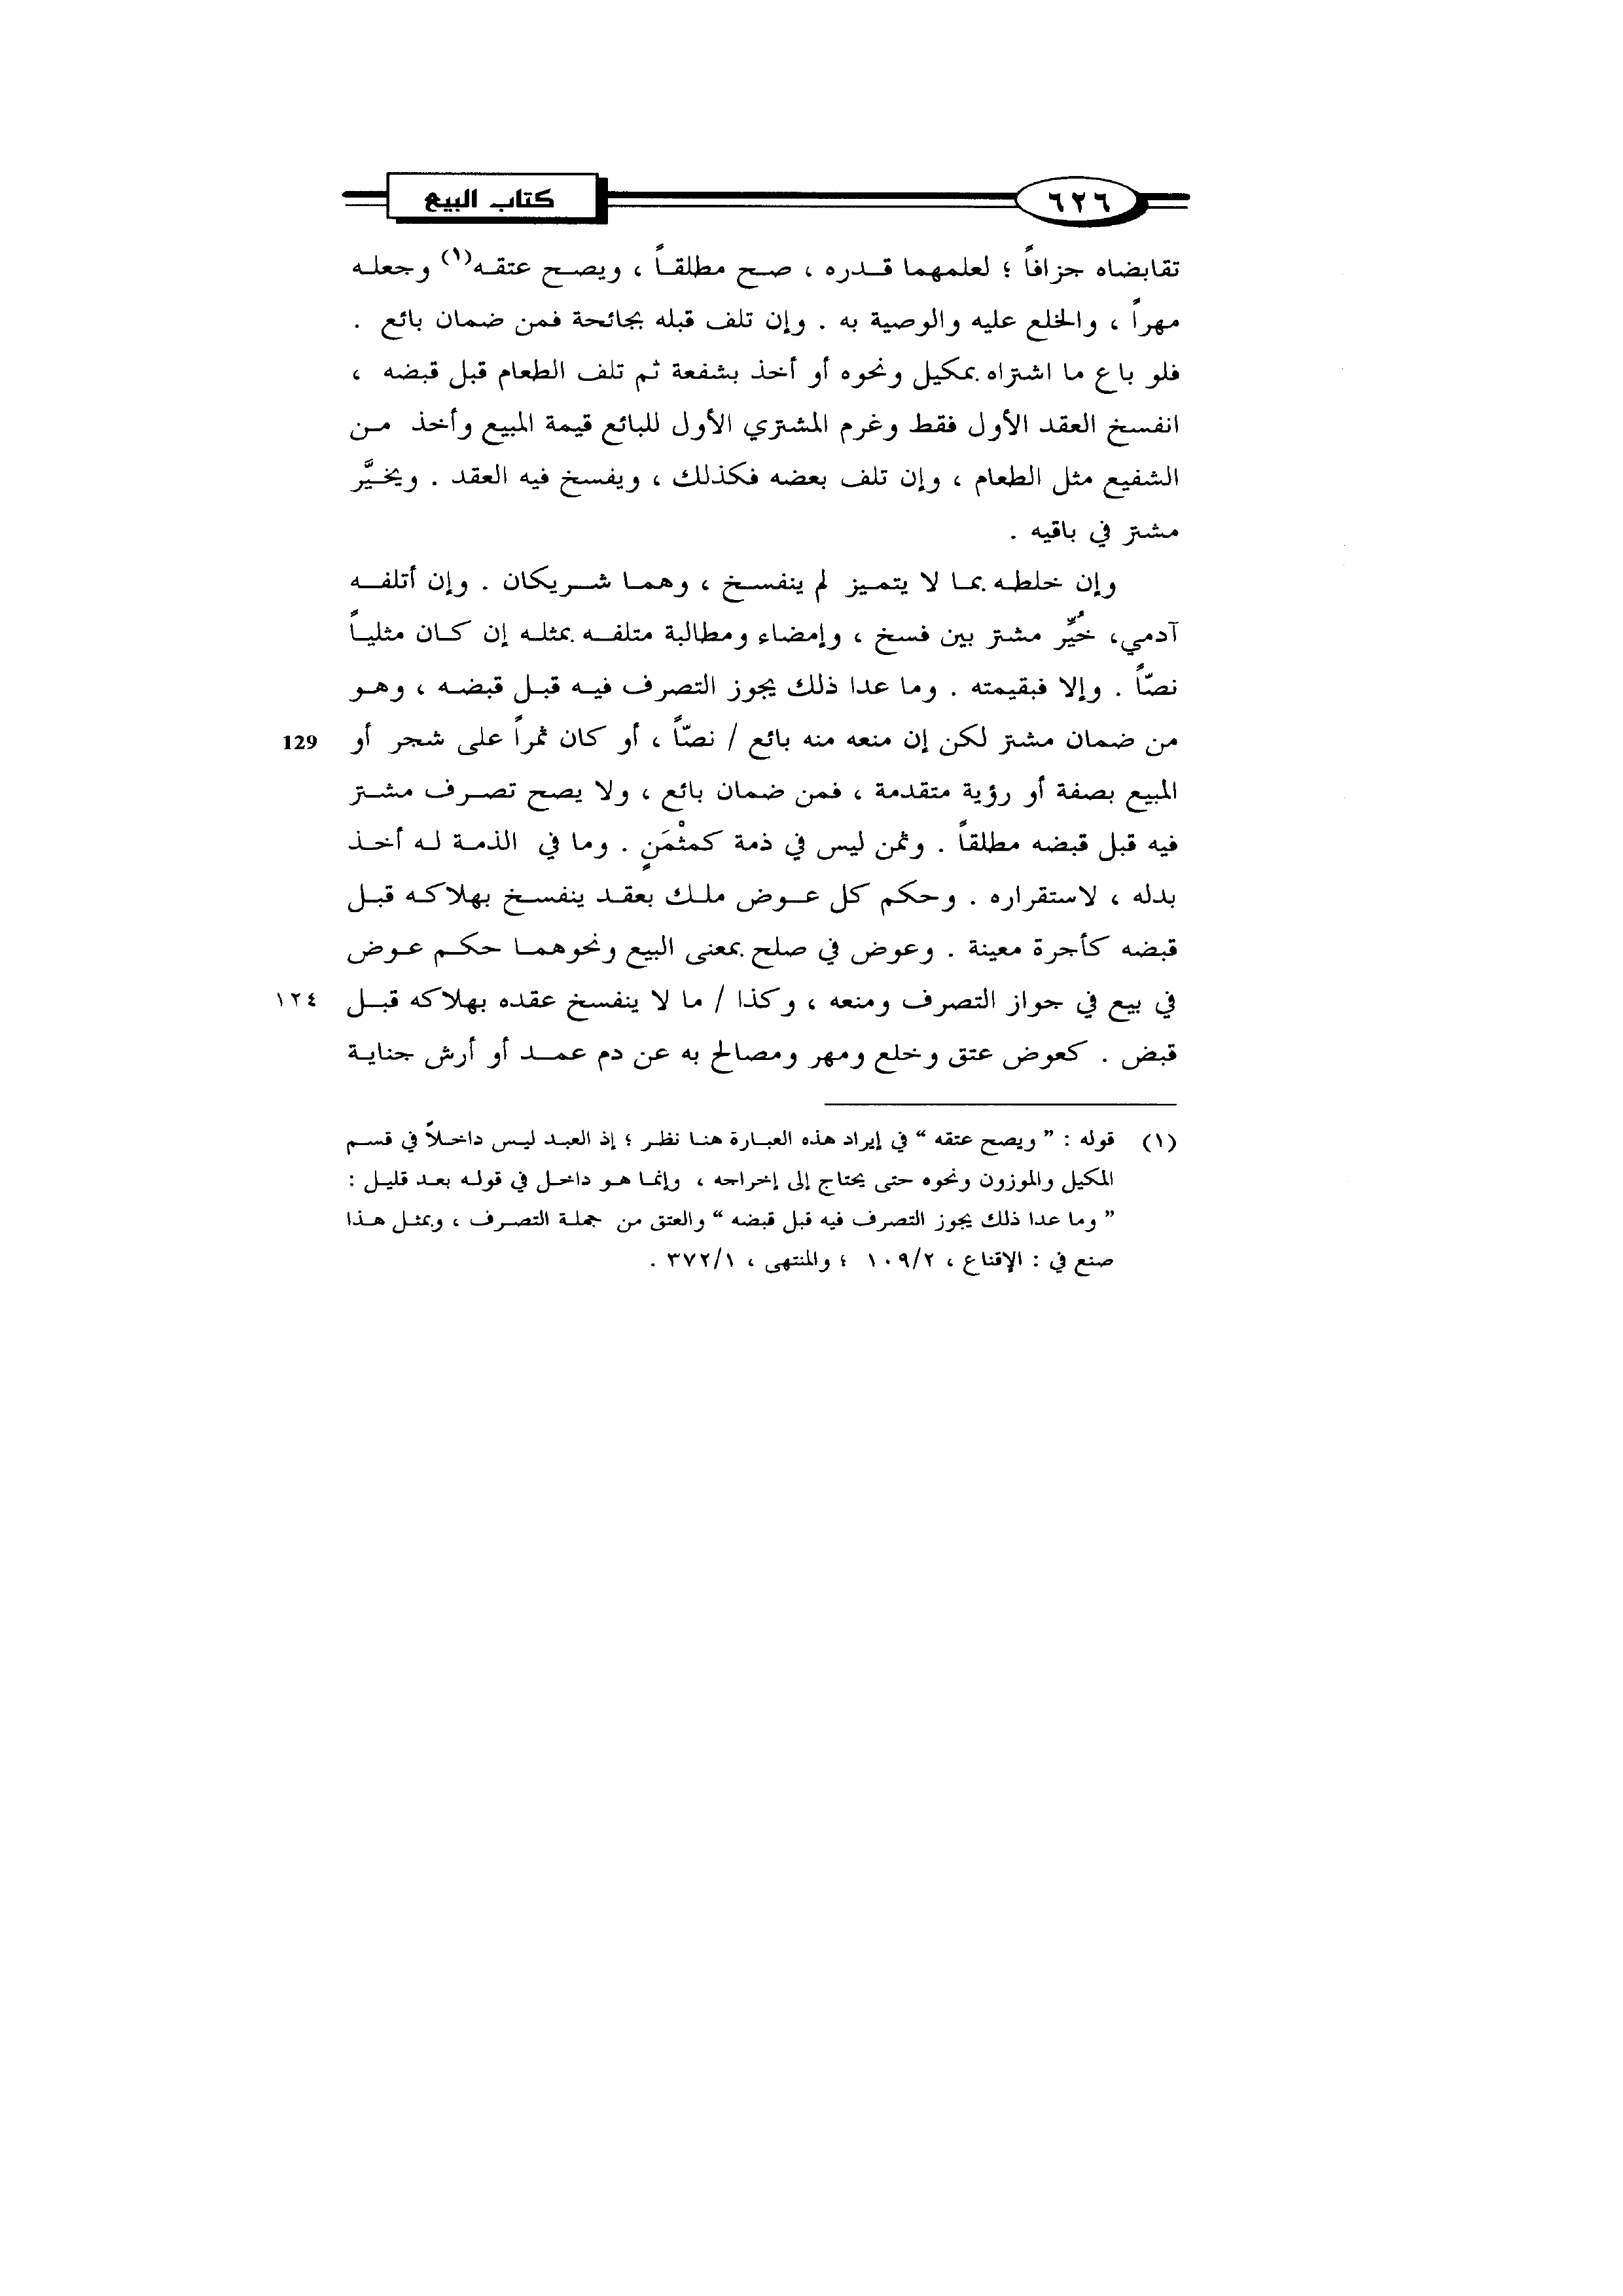 ٦٢٦
كتاب البيع
تقابضاه جزافاً ؛ لعلمهما قـدره ، صـح مطلقـاً ، ويصـح عتقـه(١) وجعلـه
مهراً ، والخلع عليه والوصية به . وإن تلف قبله بجائحة فمن ضمان بائع .
فلو باع ما اشتراه بمكيل ونحوه أو أخذ بشفعة ثم تلف الطعام قبل قبضه ،
انفسخ العقد الأول فقط وغرم المشتري الأول للبائع قيمة المبيع وأخذ مـن
الشفيع مثل الطعام ، وإن تلف بعضه فكذلك ، ويفسخ فيه العقد . ويخيَّر
مشتر في باقيه .
وإن خلطه بمـا لا يتمـيز لم ينفسـخ ، وهمـا شـريكان . وإن أتلفـه
آدمي، خُيِّر مشتر بين فسخ ، وإمضاء ومطالبة متلفـه بمثلـه إن كـان مثليـاً
نصّاً . وإلا فبقيمته . وما عدا ذلك يجوز التصرف فيـه قبـل قبضـه ، وهـو
من ضمان مشتر لكن إن منعه منه بائع / نصّاً ، أو كان ثمراً على شجر أو 129
المبيع بصفة أو رؤية متقدمة ، فمن ضمان بائع ، ولا يصح تصـرف مشـتر
فيه قبل قبضه مطلقاً . وثمن ليس في ذمة كمثْمَنٍ . وما في الذمـة لـه أخـذ
بدله ، لاستقراره . وحكم كل عـوض ملـك بعقـد ينفسـخ بهلاكـه قبـل
قبضه كأجرة معينة . وعوض في صلح بمعنى البيع ونحوهمـا حكـم عـوض
في بيع في جواز التصرف ومنعه ، وكذا / ما لا ينفسخ عقده بهلاكه قبـل ١٢٤
قبض . كعوض عتق وخلع ومهر ومصالح به عن دم عمـد أو أرش جنايـة
(١) قوله : ” ويصح عتقه “ في إيراد هذه العبـارة هنـا نظـر ؛ إذ العبـد ليـس داخـلاً في قسـم
المكيل والموزون ونحوه حتى يحتاج إلى إخراجه ، وإنمـا هـو داخـل في قولـه بعـد قليـل :
” وما عدا ذلك يجوز التصرف فيه قبل قبضه “ والعتق من جملـة التصـرف ، وبمثـل هـذا
صنع في : الإقناع ، ١٠٩/٢ ؛ والمنتهى ، ٣٧٢/١ .